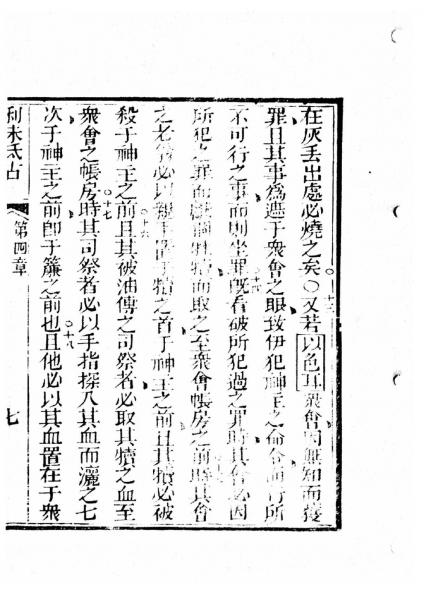 在灰丟出處必燒之矣○又若以色耳衆會因無知而獲
罪且其事爲遮于衆會之眼致伊犯神主之命令而行所
不可行之事而則坐罪旣看破所犯過之罪時其會必因
所犯之罪而獻牲犢而取之至衆會帳房之前時其會
之老必以手于犢之首于神主之前且其犢必被
殺于神主之前且其被油傅之司祭者必取其犢之血至
衆會之帳房時其司祭者必以手指探入其血而灑之七
次于神主之前卽于簾之前也且他必以其血置在于衆
利未氏古
第四章
七
十三
十四
十六
十七
十八